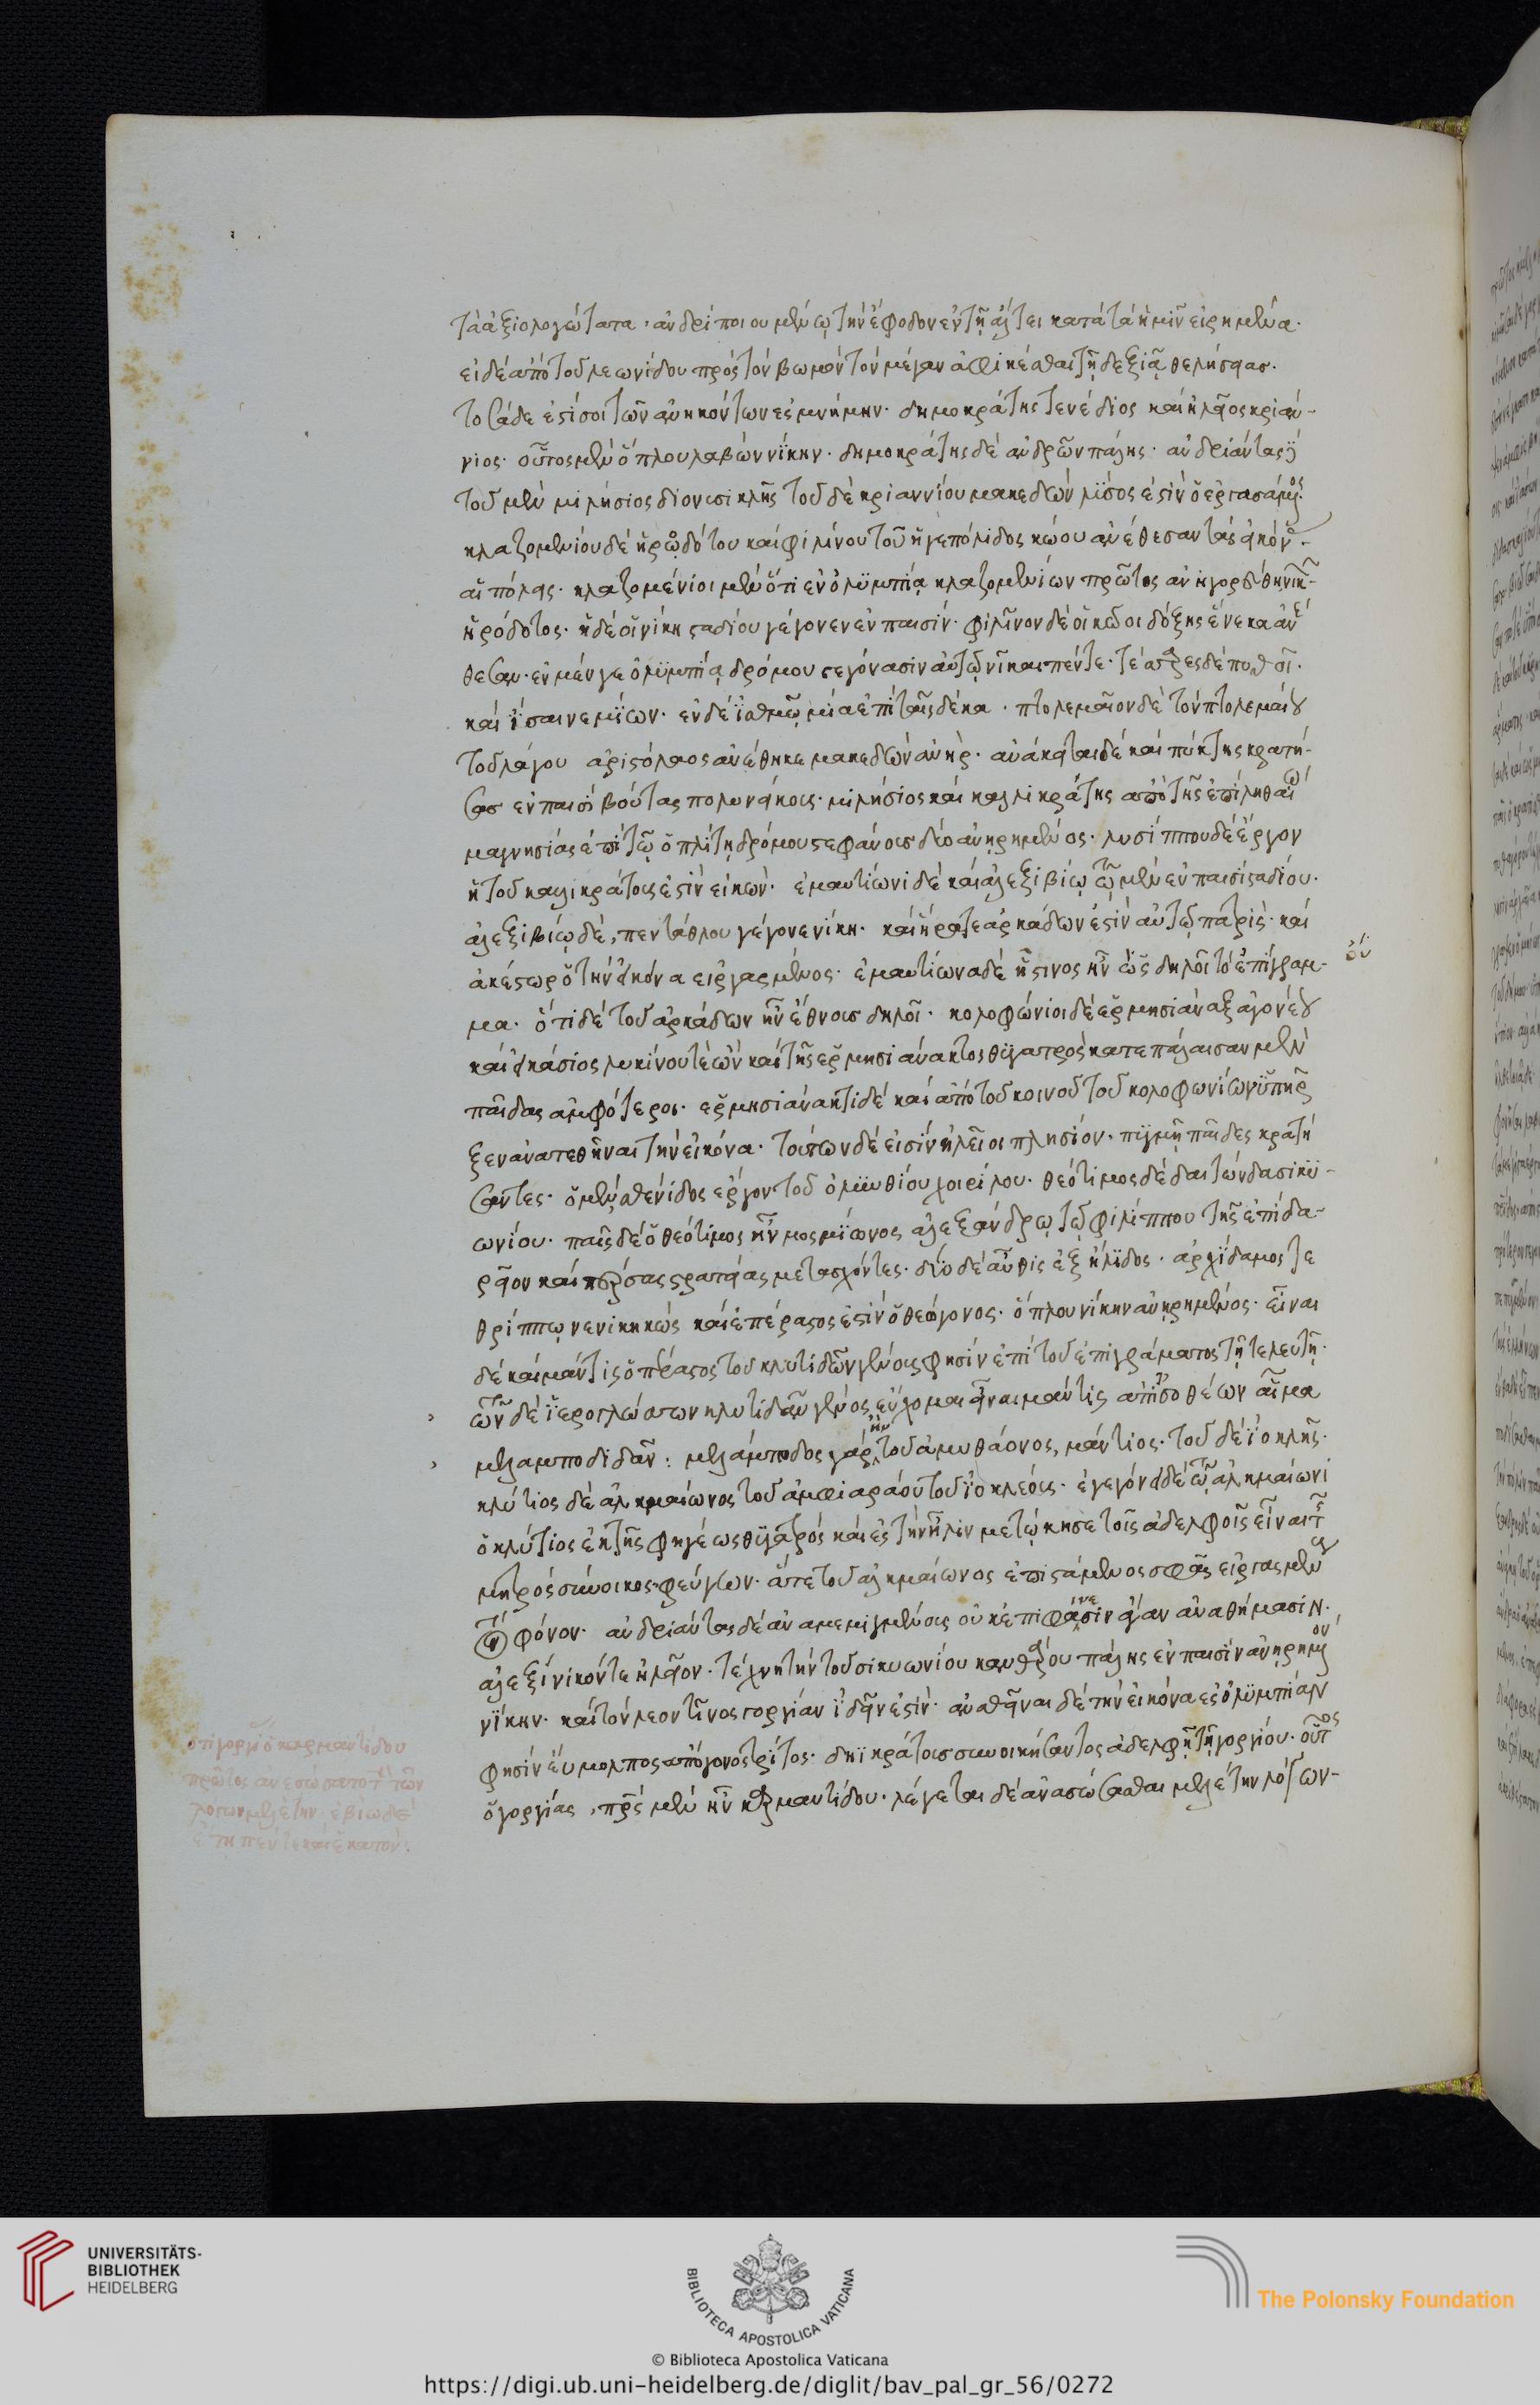 τὰ ἀξιολογώτατα. ἀνδρί ποιουμένω τὴν ἔφοδον ἐν τῆ ἄλτει κατὰ τὰ ἡμῖν εἰρημένα.
εἰ δὲ ἀπὸ τοῦ λεωνίδου πρὸς τὸν βωμὸν τὸν μέγαν ἀφικέσθαι τῆ δεξιᾶ θελήσειας.
τοσάδε ἐστί σοι τῶν ἀνηκόντων ἐς μνήμην. δημοκράτης τενέδιος καὶ ἠλεῖος κριαν-
νιος. οὗτος μὲν ὅπλου λαβὼν νίκην. δημοκράτης δὲ ἀνδρῶν πάλης. ἀνδριάντας
τοῦ μὲν μιλήσιος διονυσικλῆς τοῦ δὲ κριαννίου μακεδὼν λύσος ἐστὶν ὁ ἐργασάμενος.
κλαζομενίου δὲ ἡρωδότου καὶ φιλίνου τοῦ ἡγεπόλιδος κώου ἀνέθεσαν τὰς εἰκόνας
αἱ πόλεις. κλαζομένιοι μὲν ὅτι ἐν ὀλυμπία κλαζομενίων πρῶτος ἀνηγορεύθη νικῶν
ἡρόδοτος. ἡ δέ οἱ νίκη σταδίου γέγονεν ἐν παισίν. φιλῖνον δὲ οἱ κῶοι δόξης ἕνεκα ἀνέ
θεσαν. ἐν μέν γε ὀλυμπία δρόμου γεγόνασιν αὐτῶ νῖκαι πέντε. τέσσαρες δὲ πυθοῖ.
καὶ ἴσαι νεμίων. ἐν δὲ ἰσθμῶ μία ἐπὶ ταῖς δέκα. πτολεμαῖον δὲ τὸν πτολεμαίου
τοῦ λάγου ἀριστόλαος ἀνέθηκε μακεδὼν ἀνήρ. ἀνάκειται δὲ καὶ πύκτης κρατή-
σας ἐν παισὶ βούτας πολυνείκους. μιλήσιος καὶ καλλικράτης ἀπὸ τῆς ἐπὶ ληθαίω
μαγνησίας ἐπὶ τῶ ὁπλίτη δρόμου στεφάνους δύο ἀνηρημένος. λυσίππου δὲ ἔργον
ἡ τοῦ καλλικράτους ἐστὶν εἰκών. ἐμαυτίωνι δὲ καὶ ἀλεξιβίω τῶ μὲν ἐν παισὶ σταδίου.
ἀλεξιβίω δὲ, πεντάθλου γέγονε νίκη. καὶ ἡραῖα τε ἀρκάδων ἐστὶν αὐτῶ πατρίς. καὶ
ἀκέστωρ ὁ τὴν εἰκόνα εἰργασμένος. ἐμαυτίωνα δὲ ἧστινος ἦν οὐ δηλοῖ τὸ ἐπίγραμ-
οὐ
μα. ὅτι δὲ τοῦ ἀρκάδων ἦν ἔθνους δηλοῖ. κολοφώνιοι δὲ ἑρμησιάναξ ἀγονέου
καὶ εἰκάσιος λυκίνου τε ὢν καὶ τῆς ἑρμησιάνακτος θυγατρὸς κατεπάλαισαν μὲν
παῖδας ἀμφότεροι. ἑρμησιάνακτι δὲ καὶ ἀπὸ τοῦ κοινοῦ τοῦ κολοφωνίων ὑπῆρ
ξεν ἀνατεθῆναι τὴν εἰκόνα. τούτων δὲ εἰσὶν ἠλεῖοι πλησίον. πυγμῆ παῖδες κρατή
σαντες. ὁ μὲν σθενίδος ἔργον τοῦ ὀλυνθίου χοιρίλου. θεότιμος δὲ δαιτώνδα σικυ-
ωνίου. παῖς δὲ ὁ θεότιμος ἦν μοσμίωνος ἀλεξάνδρω τῶ φιλίππου τῆς ἐπὶ δα-
ρεῖον καὶ πέρσας στρατείας μετασχόντες. δύο δὲ αὖθις ἐξ ἤλιδος. ἀρχίδαμος τε
θρίππω νενικηκὼς καὶ ἐπέραστός ἐστιν ὁ θεόγονος. ὅπλου νίκην ἀνηρημένος. εἶναι
δὲ καὶ μάντις ὁ πέραστος τοῦ κλυτιδῶν γένους φησὶν ἐπὶ τοῦ ἐπιγράμματος τῆ τελευτῆ.
τῶν δὲ ἱερογλώσσων κλυτιδᾶν γένος εὔχομαι εἶναι μάντις ἀπ' ἰσοθέων αἷμα
μελαμποδιδᾶν: μελάμποδος γὰρ ἦν τοῦ ἀμυθάονος, μάντιος. τοῦ δὲ ἰοκλῆς.
κλύτιος δὲ ἀλκμαίωνος τοῦ ἀμφιαράου τοῦ ἰοκλέους. ἐγεγόνει δὲ τῶ ἀλκμαίωνι
ὁ κλύτιος ἐκ τῆς φηγέως θυγατρὸς καὶ ἐς τὴν ἦλιν μετώκησε τοῖς ἀδελφοῖς εἶναι τῆς
μητρὸς σύνοικος φεύγων. ἅτε τοῦ ἀλκμαίωνος ἐπιστάμενος σφᾶς εἰργασμένους
τὸν φόνον. ἀνδριάντας δὲ ἀναμεμιγμένους οὐκ ἐπιφανέσιν ἄγαν ἀναθήμασιν.
ἀλεξίνικόν τε ἠλεῖον. τέχνη τὴν τοῦ σικυωνίου κανθάρου πάλης ἐν παισὶν ἀνηρημένον
νίκην. καὶ τὸν λεοντῖνος γοργίαν ἰδεῖν ἐστιν. ἀναθεῖναι δὲ τὴν εἰκόνα ἐς ὀλυμπίαν
φησὶν εὔμολπος ἀπόγονος τρίτος. δηϊκράτους συνοικήσαντος ἀδελφῆ τῆ γοργίου. οὗτος
ὁ γοργίας, πατρὸς μὲν ἦν καρμαντίδου. λέγεται δὲ ἀνασώσασθαι μελέτην λόγων-
ὅτι γοργίας ὁ καρμαντίδου
πρῶτος ἀνεσώσατο τὴν τῶν
λόγων μελέτην. ἐβίω δὲ
ἔτη πέντε καὶ ἑκατόν.
UNIVERSITÄTS-
BIBLIOTHEK
HEIDELBERG
BIBLIOTECA APOSTOLICA VATICANA
The Polonsky Foundation
© Biblioteca Apostolica Vaticana
https://digi.ub.uni-heidelberg.de/diglit/bav_pal_gr_56/0272